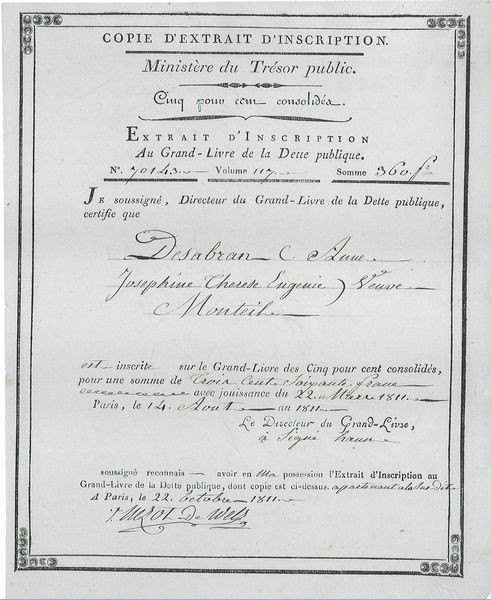 COPIE D'EXTRAIT D'INSCRIPTION.
Ministère du Trésor public.
Cinq pour cent consolidés.
EXTRAIT D'INSCRIPTION
Au Grand-Livre de la Dette publique.
N°. 70143 Volume 117 Somme 360 f.
JE soussigné, Directeur du Grand-Livre de la Dette publique,
certifie que
Desabran (Anne
Josephine Therese Eugenie) Veuve
Monteil
est inscrite sur le Grand-Livre des Cinq pour cent consolidés,
pour une somme de Trois Cent Soixante franc
avec jouissance du 22 Mars 1811.
Paris, le 14 Aout an 1811
Le Directeur du Grand-Livre,
à Signé
soussigné reconnais avoir en ma possession l'Extrait d'Inscription au
Grand-Livre de la Dette publique, dont copie est ci-dessus. apartenant a la Sus dite
A Paris, le 22 Octobre 1811.